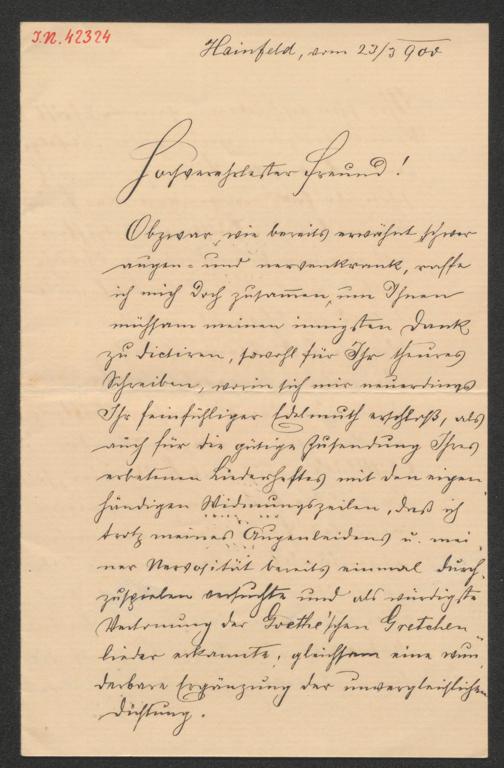 I.N. 42324
Hainfeld, vom 23/3 900
Hochverehrtester Freund!
Obzwar, wie bereits erwähnt, schwer
augen- und nervenkrank, raffe
ich mich doch zusammen, um Ihnen
mühsam meinen innigsten Dank
zu dictiren, sowohl für Ihr theures
Schreiben, worin sich mir neuerdings
Ihr feinfühliger Edelmuth erschloß, als
auch für die gütige Zusendung Ihres
erbetenen Liederheftes mit den eigen
händigen Widmungszeilen, daß ich
trotz meines Augenleidens u. mei
ner Nervosität bereits einmal durch
zuspielen versuchte und als würdigste
Vertonung der Goethe'schen Gretchen
lieder erkannte, gleichsam eine wun
derbare Ergänzung der unvergleichlichen
Dichtung.